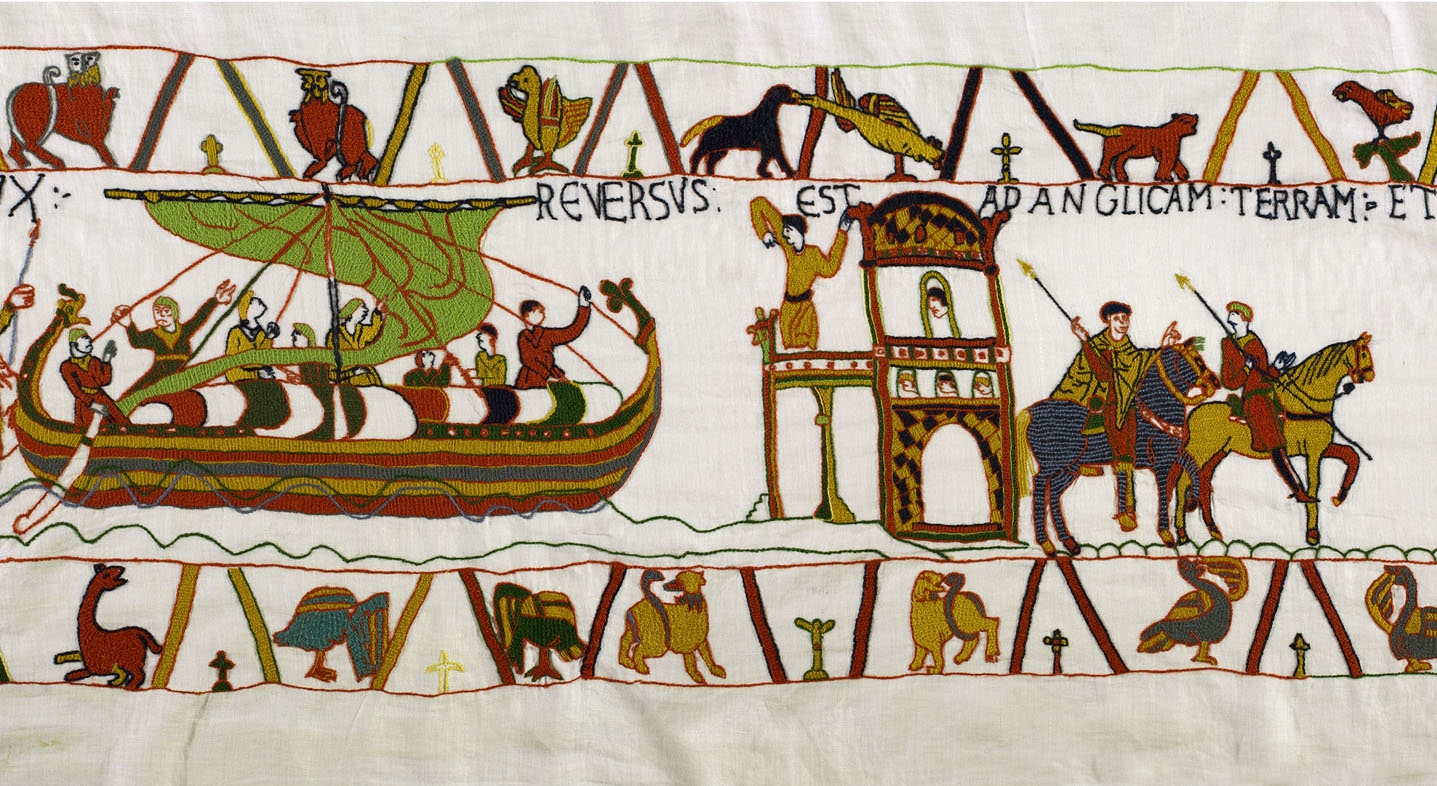 VX :· REVERSVS : EST AD ANGLICAM : TERRAM :· ET